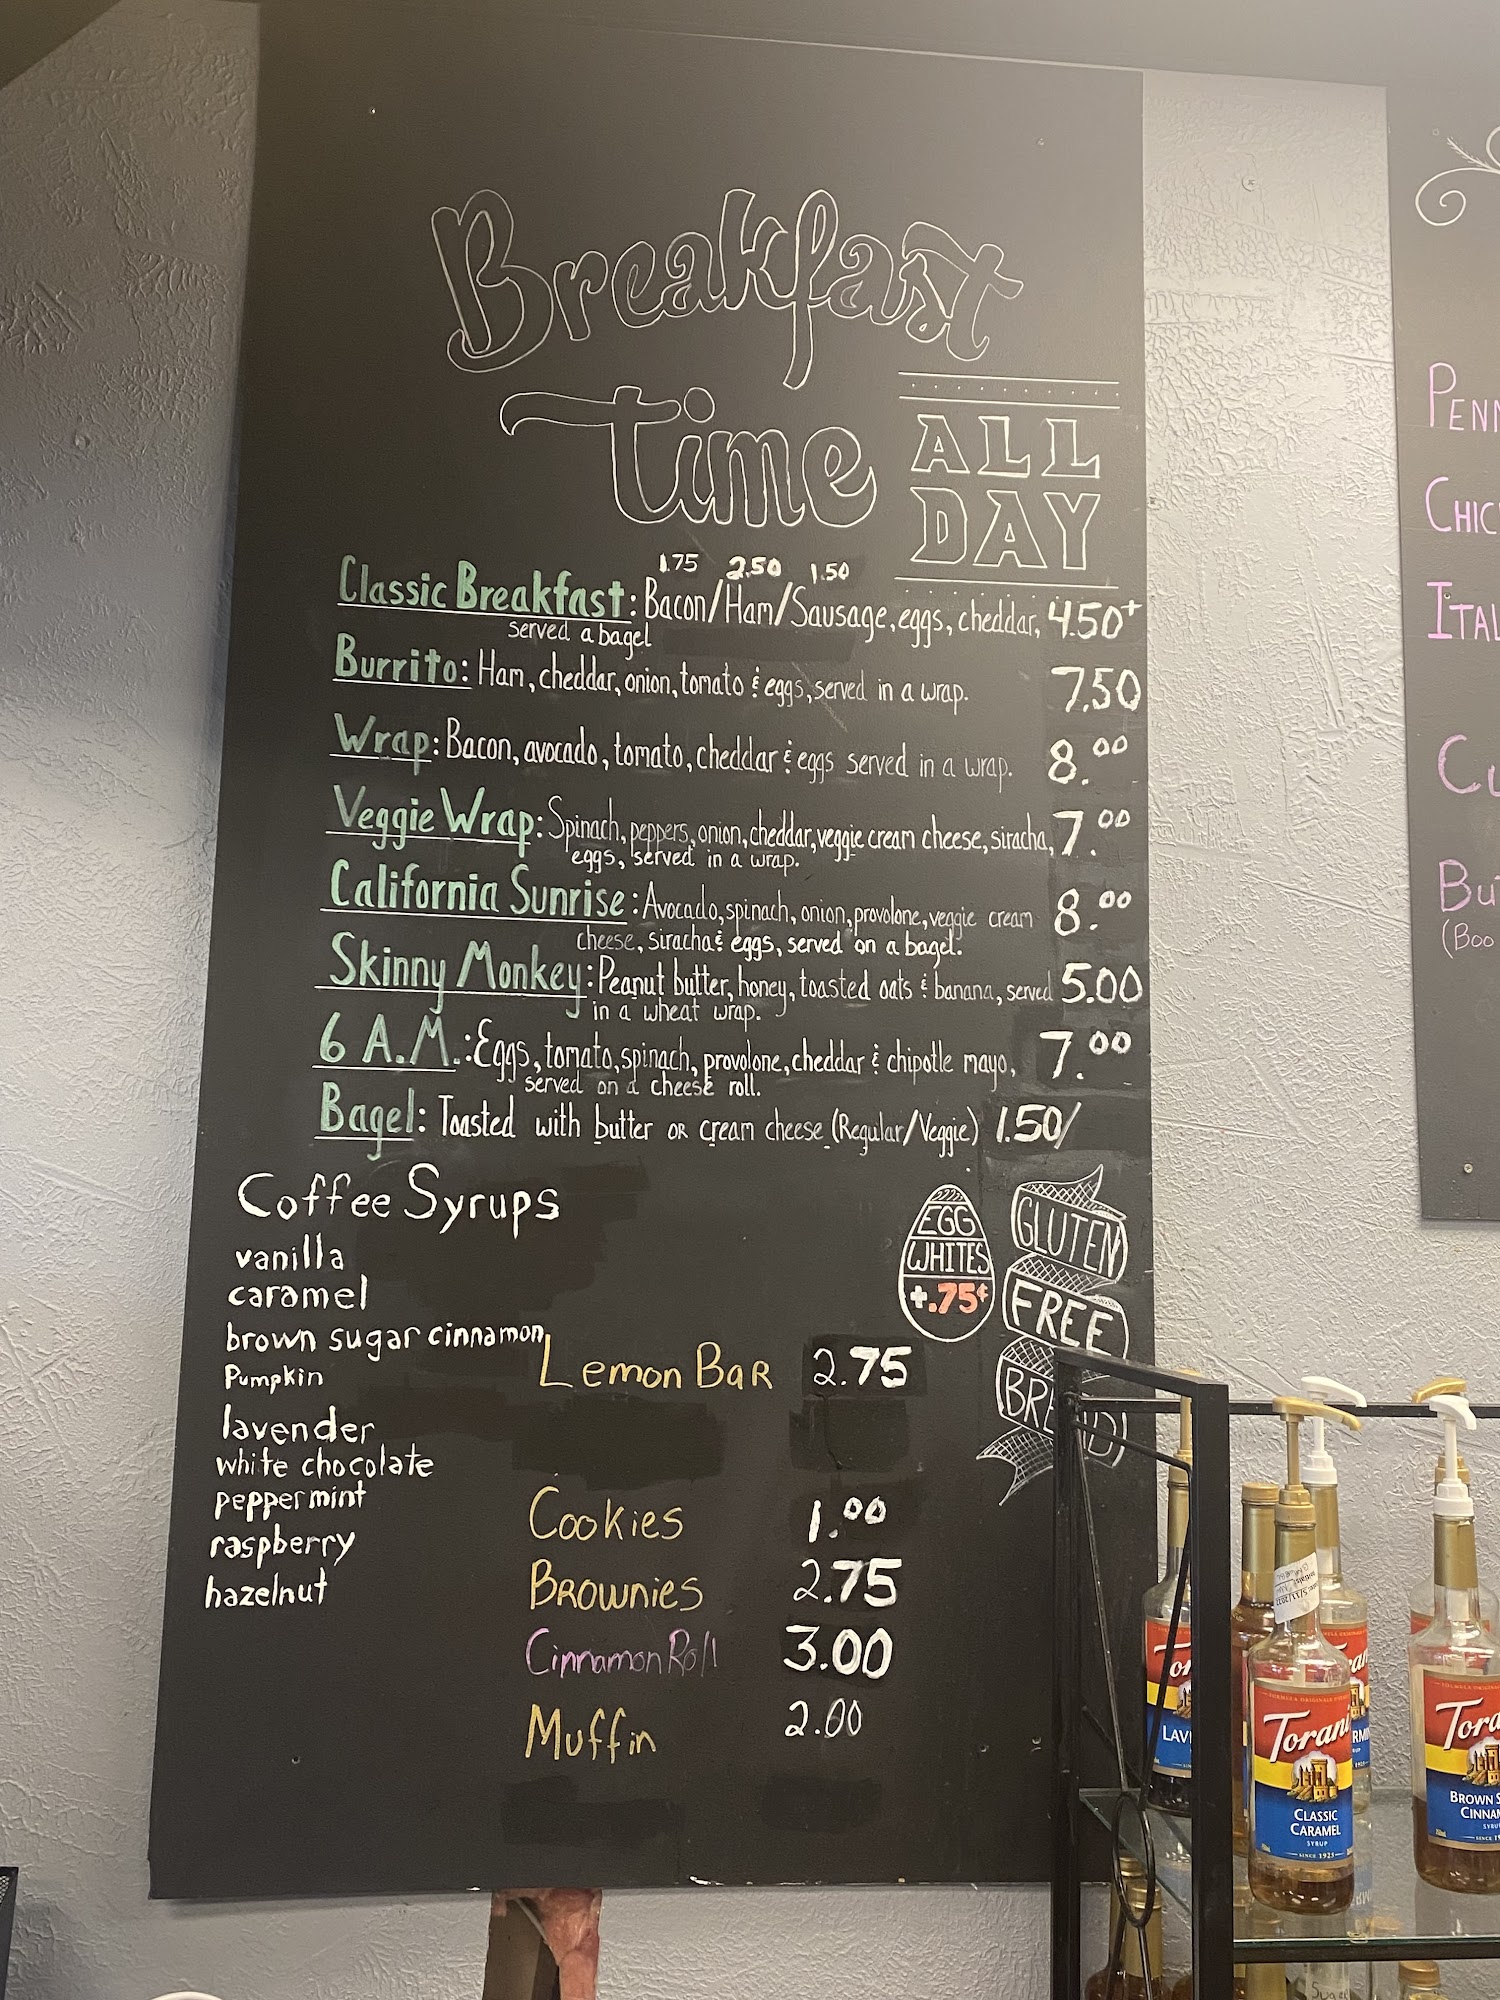 Breakfast
Time
ALL
DAY
1.75 2.50 1.50
Classic Breakfast: Bacon/Ham/Sausage, eggs, cheddar, 4.50+
served a bagel
Burrito: Ham, cheddar, onion, tomato & eggs, served in a wrap. 7.50
Wrap: Bacon, avocado, tomato, cheddar & eggs served in a wrap. 8.00
Veggie Wrap: Spinach, peppers, onion, cheddar, veggie cream cheese, siracha, 7.00
eggs, served in a wrap.
California Sunrise: Avocado, spinach, onion, provolone, veggie cream 8.00
cheese, siracha & eggs, served on a bagel.
Skinny Monkey: Peanut butter, honey, toasted oats & banana, served 5.00
in a wheat wrap.
6 A.M.: Eggs, tomato, spinach, provolone, cheddar & chipotle mayo, 7.00
served on a cheese roll.
Bagel: Toasted with butter OR cream cheese (Regular/Veggie) 1.50/
Coffee Syrups
vanilla
caramel
brown sugar cinnamon
Pumpkin
lavender
white chocolate
peppermint
raspberry
hazelnut
EGG
WHITES
+.75¢
GLUTEN
FREE
BREAD
Lemon Bar 2.75
Cookies 1.00
Brownies 2.75
Cinnamon Roll 3.00
Muffin 2.00
PENN
CHIC
ITAL
CU
BU
(BOO
Torani
CLASSIC
CARAMEL
SYRUP
SINCE 1925
Tora
BROWN S
CINNAM
LAV